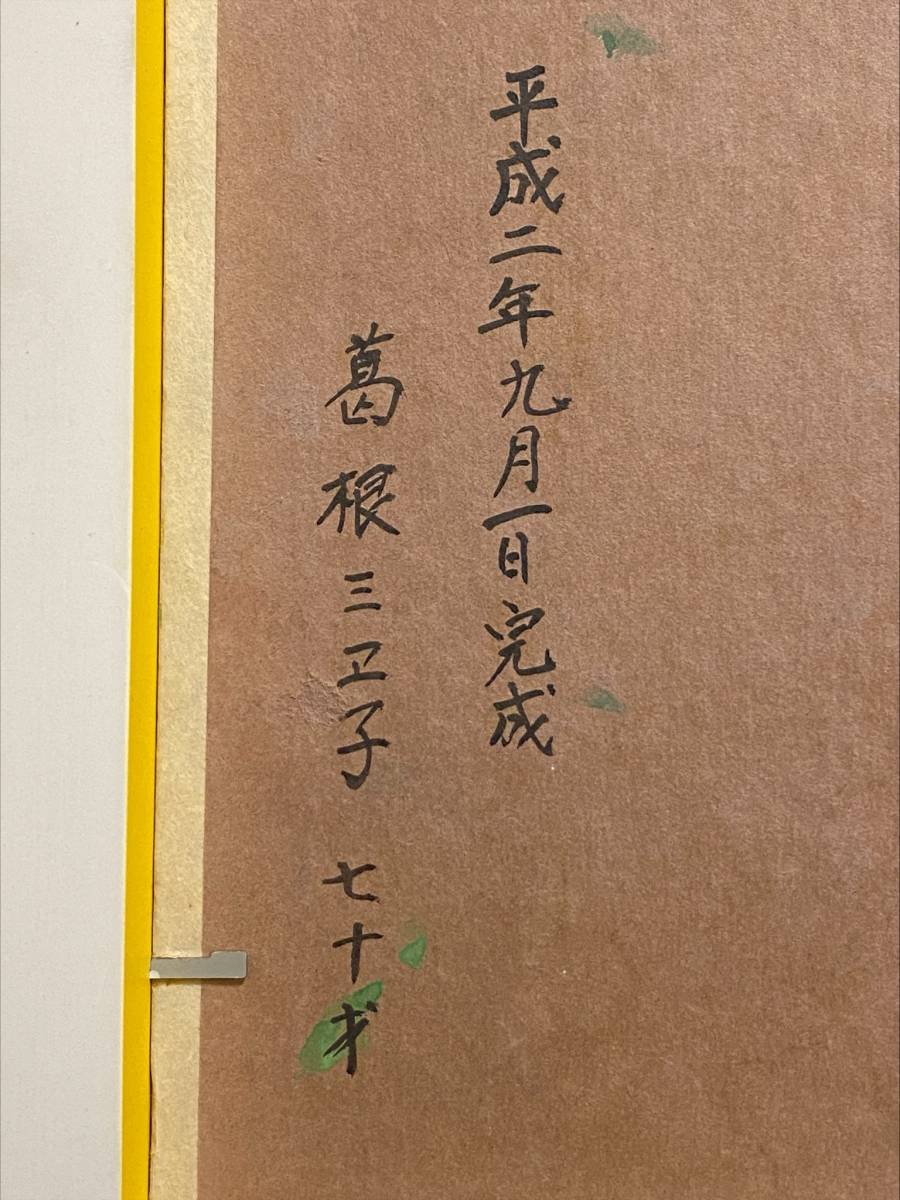 平成二年九月一日完成
葛根三ヱ子 七十才